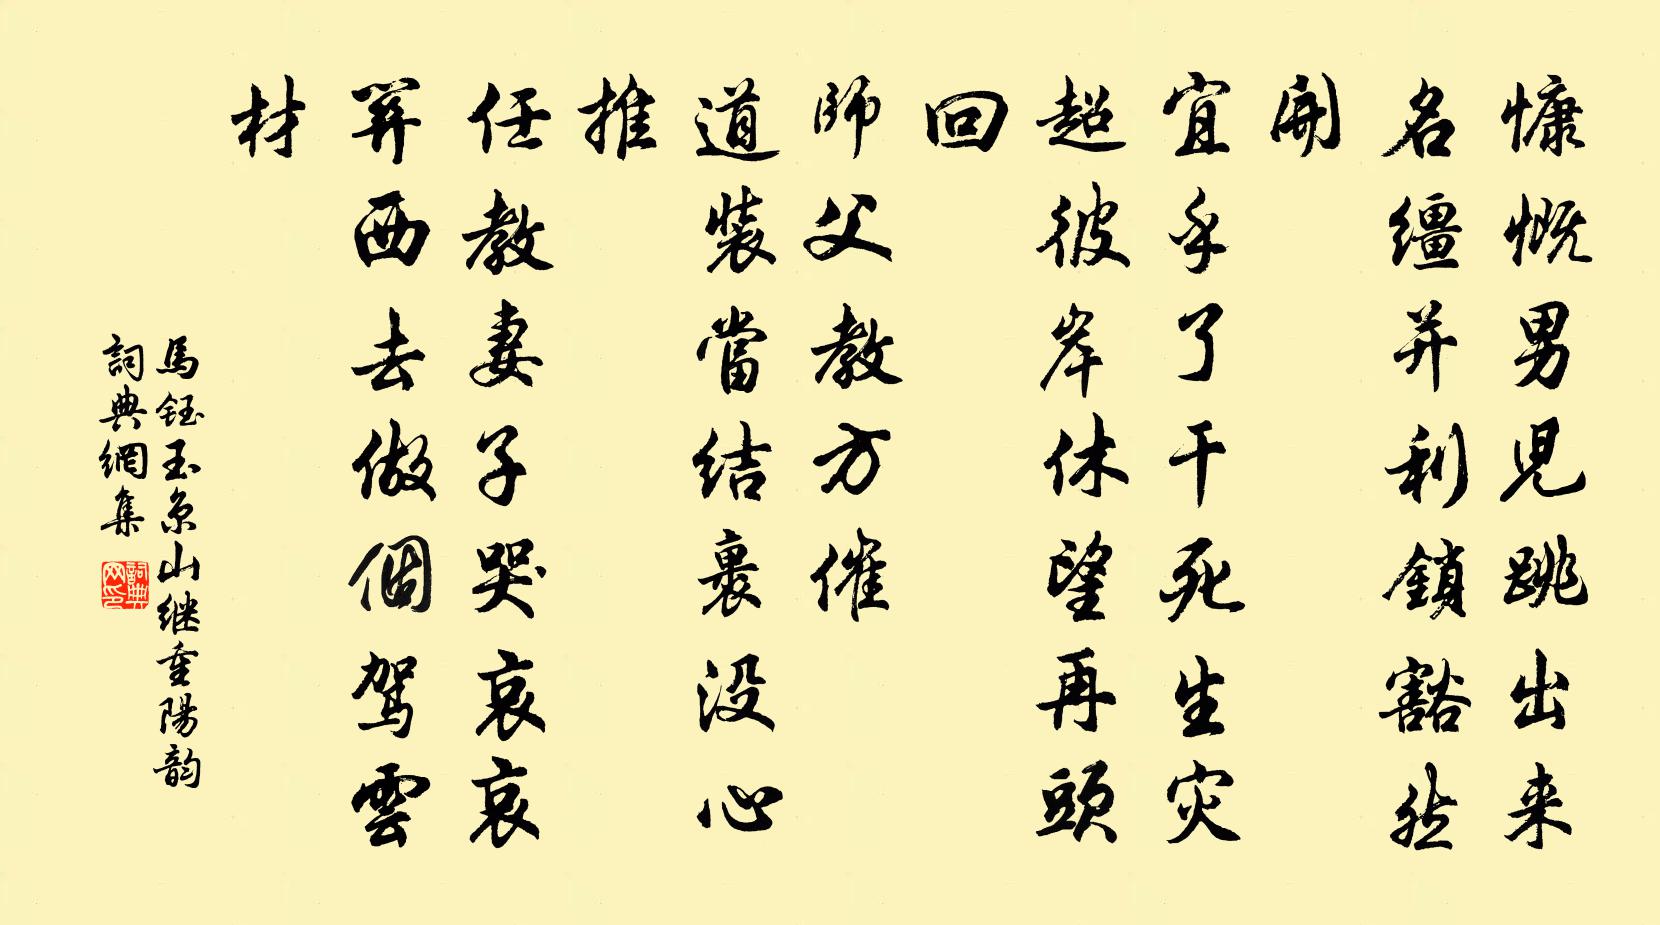 慷慨男児跳出来
名缰并利鎖豁然
開
宜乎了干死生灾
超彼岸休望再頭
回
師父教方催
道裝當结裹没心
推
任教妻子哭哀哀
西去做個駕雲
材
馬鈺玉京山继重陽韵
詞典網集
詞典网印